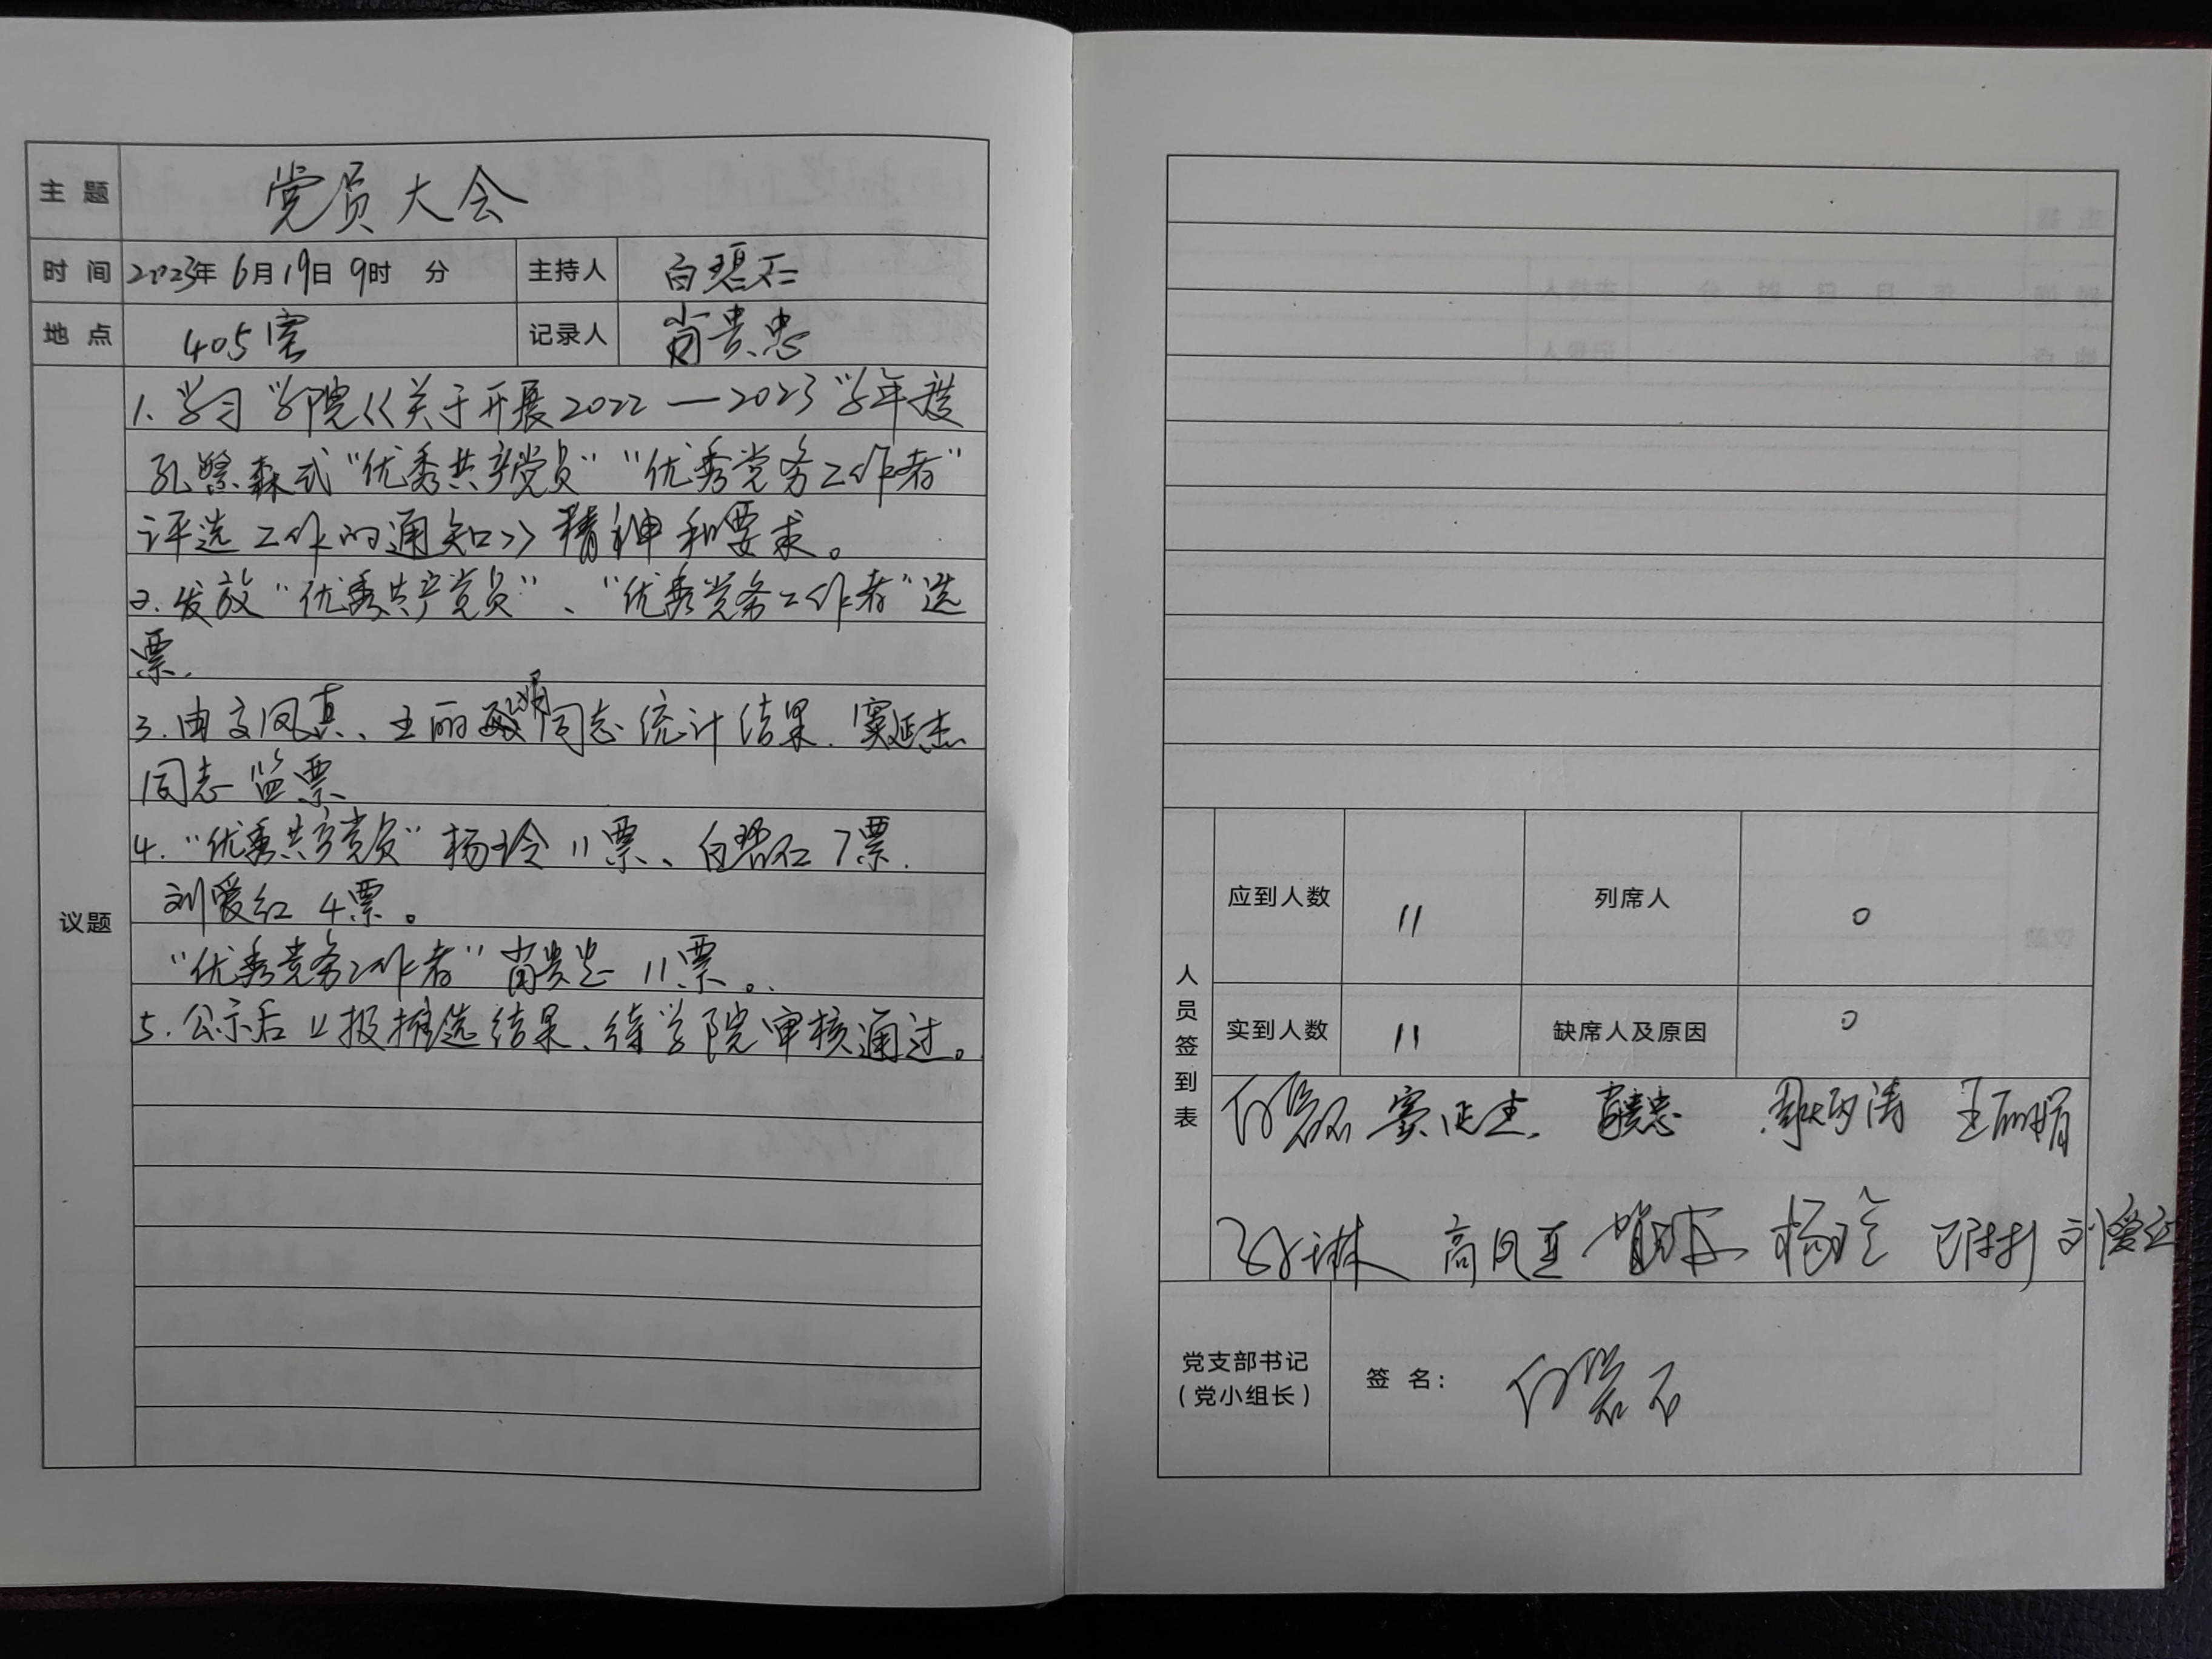 主题 党员大会
时间 2023年 6月19日 9时 分 主持人 白碧石
地点 405室 记录人 肖贵忠
1. 学习学院《关于开展2022—2023学年度
孔繁森式“优秀共产党员”“优秀党务工作者”
评选工作的通知》精神和要求。
2. 发放“优秀共产党员”、“优秀党务工作者”选
票.
3. 由高凤真、王丽娟同志统计结果. 窦延杰
同志监票
4. “优秀共产党员”杨玲11票、白碧石7票.
刘爱红4票。
议题
“优秀党务工作者”肖贵忠11票。
5. 公示后上报推选结果、待学院审核通过。
应到人数 11 列席人 0
人员签到表
实到人数 11 缺席人及原因 0
白碧石 窦延杰 肖贵忠 王丽娟
高凤真 杨玲 刘爱红
党支部书记
（党小组长）
签 名： 白碧石